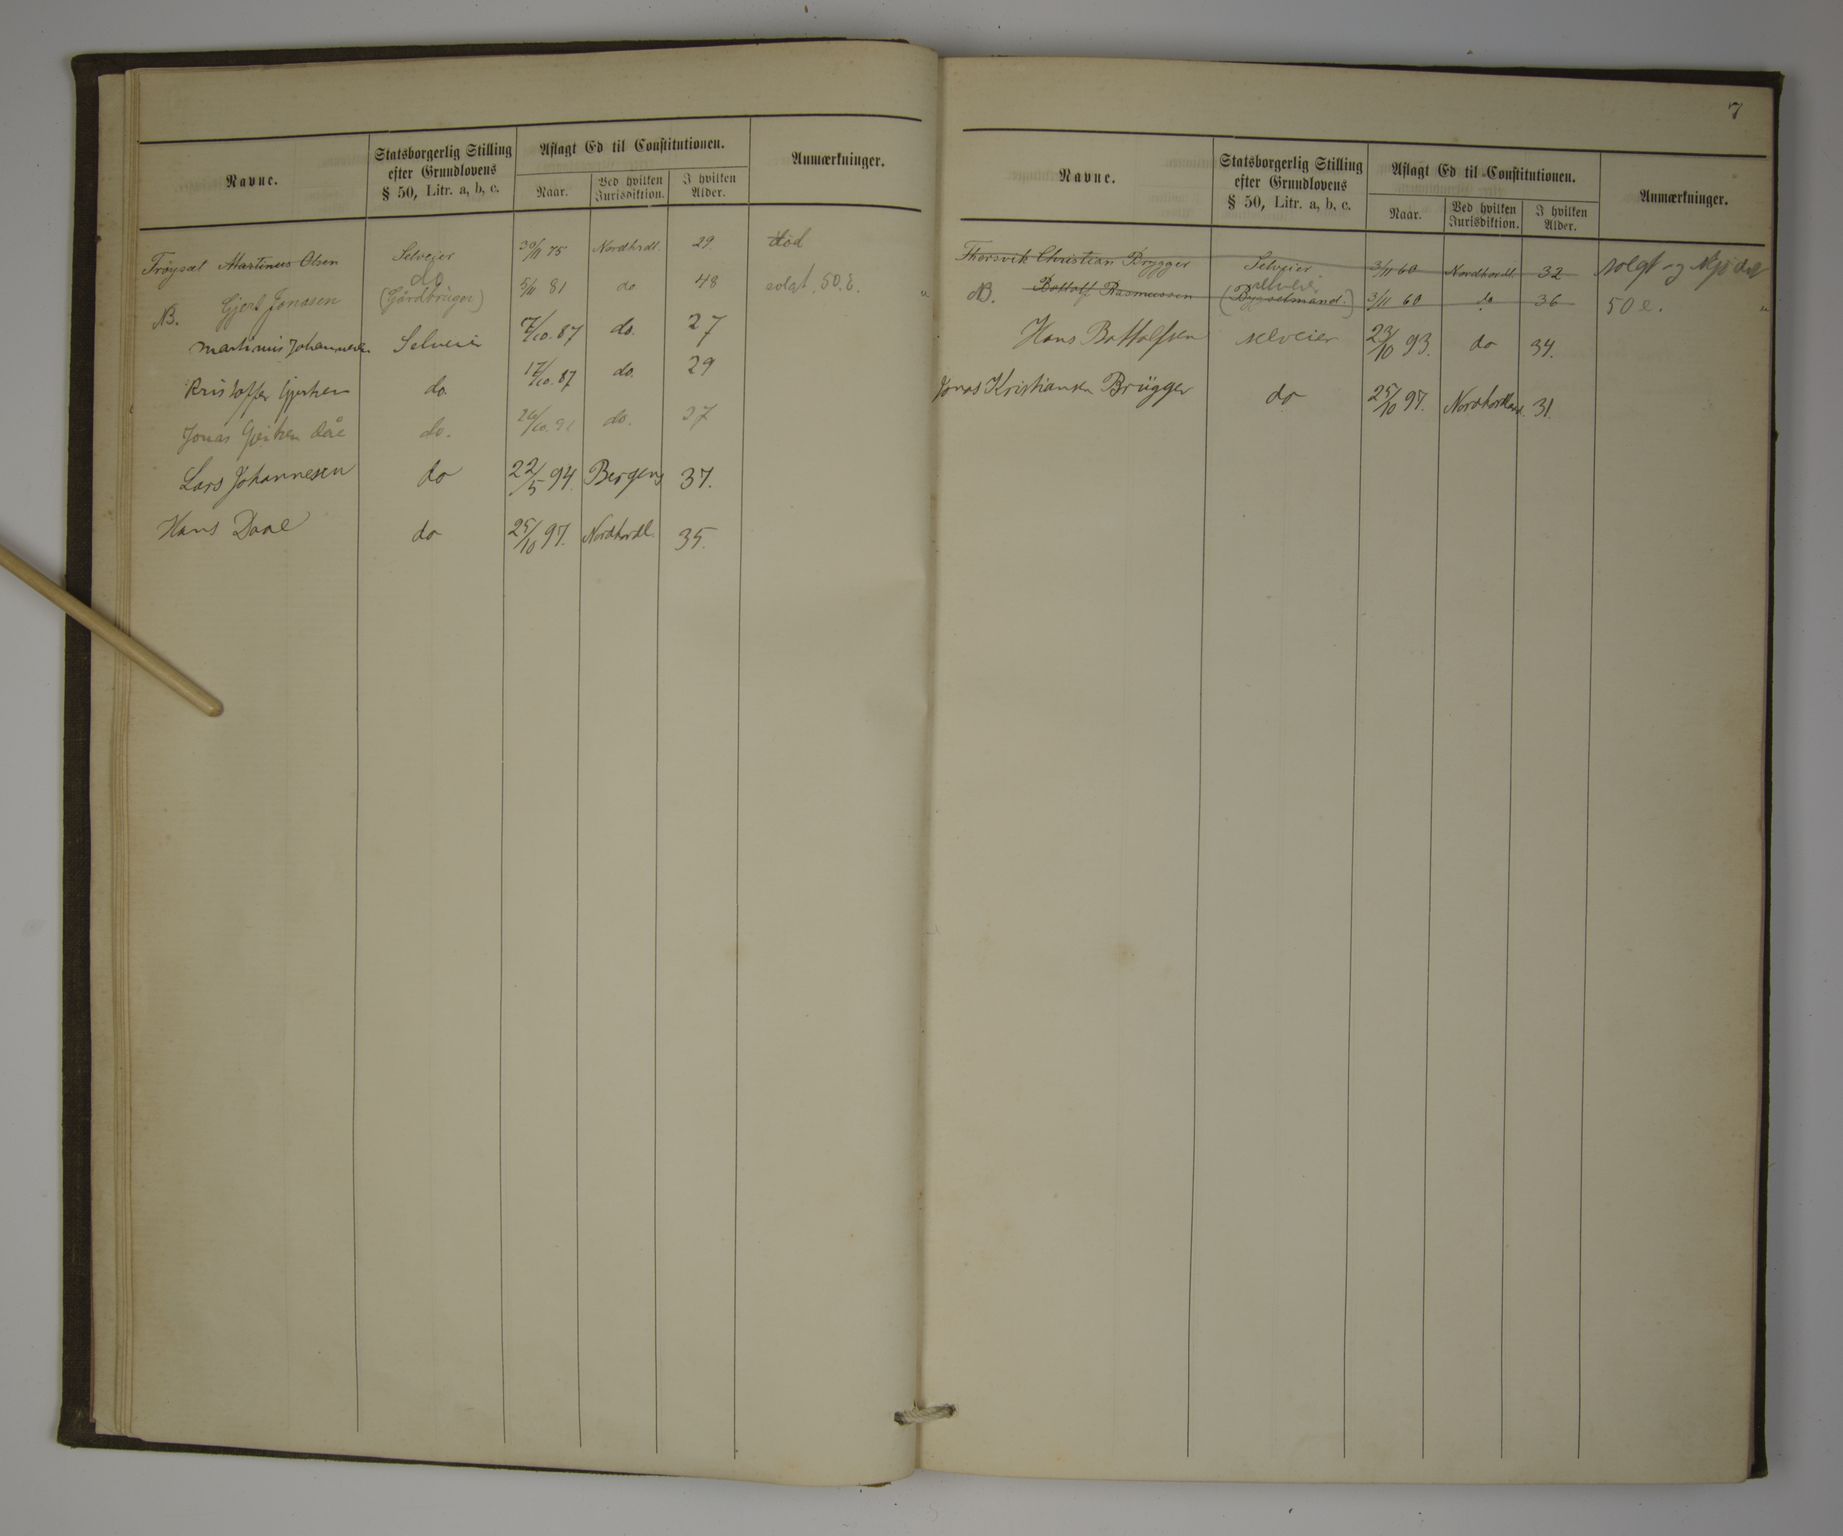 Navne. Statsborgerlig Stilling efter Grundlovens § 50, Litr. a, b, c. Aflagt Ed til Constitutionen. Anmærkninger.
Naar. Ved hvilken Jurisdiktion. I hvilken Alder.
Trøysæt Martinus Olsen Selveier 30/11 75 Nordhrdl. 29 død
NB. Gjert Jonasen do (Gårdbrüger) 5/11 81 do 48 solgt. 50. E.
Martinus Johannesen Selveier 17/10. 87 do. 27
Kristoffer Gjertsen do. 17/10. 87 do. 29
Jonas Gjertsen Dåe do. 26/10. 91 do. 27
Lars Johannesen do 22/5 94. Bergens 37.
Hans Daae do 25/10 97. Nordhordl. 35.
7
Navne. Statsborgerlig Stilling efter Grundlovens § 50, Litr. a, b, c. Aflagt Ed til Constitutionen. Anmærkninger.
Naar. Ved hvilken Jurisdiktion. I hvilken Alder.
Thorsvik Christian Brygger Selveier 3/11 60 Nordhordl 32 solgt og
NB. Bottolf Rasmussen selveier (Bygselmand.) 3/11 60 do 36 50 e.
Hans Bottolfsen selveier 23/10 93. do 34.
Jonas Kristiansen Brügger do 25/10 97. Nordhordland. 31.